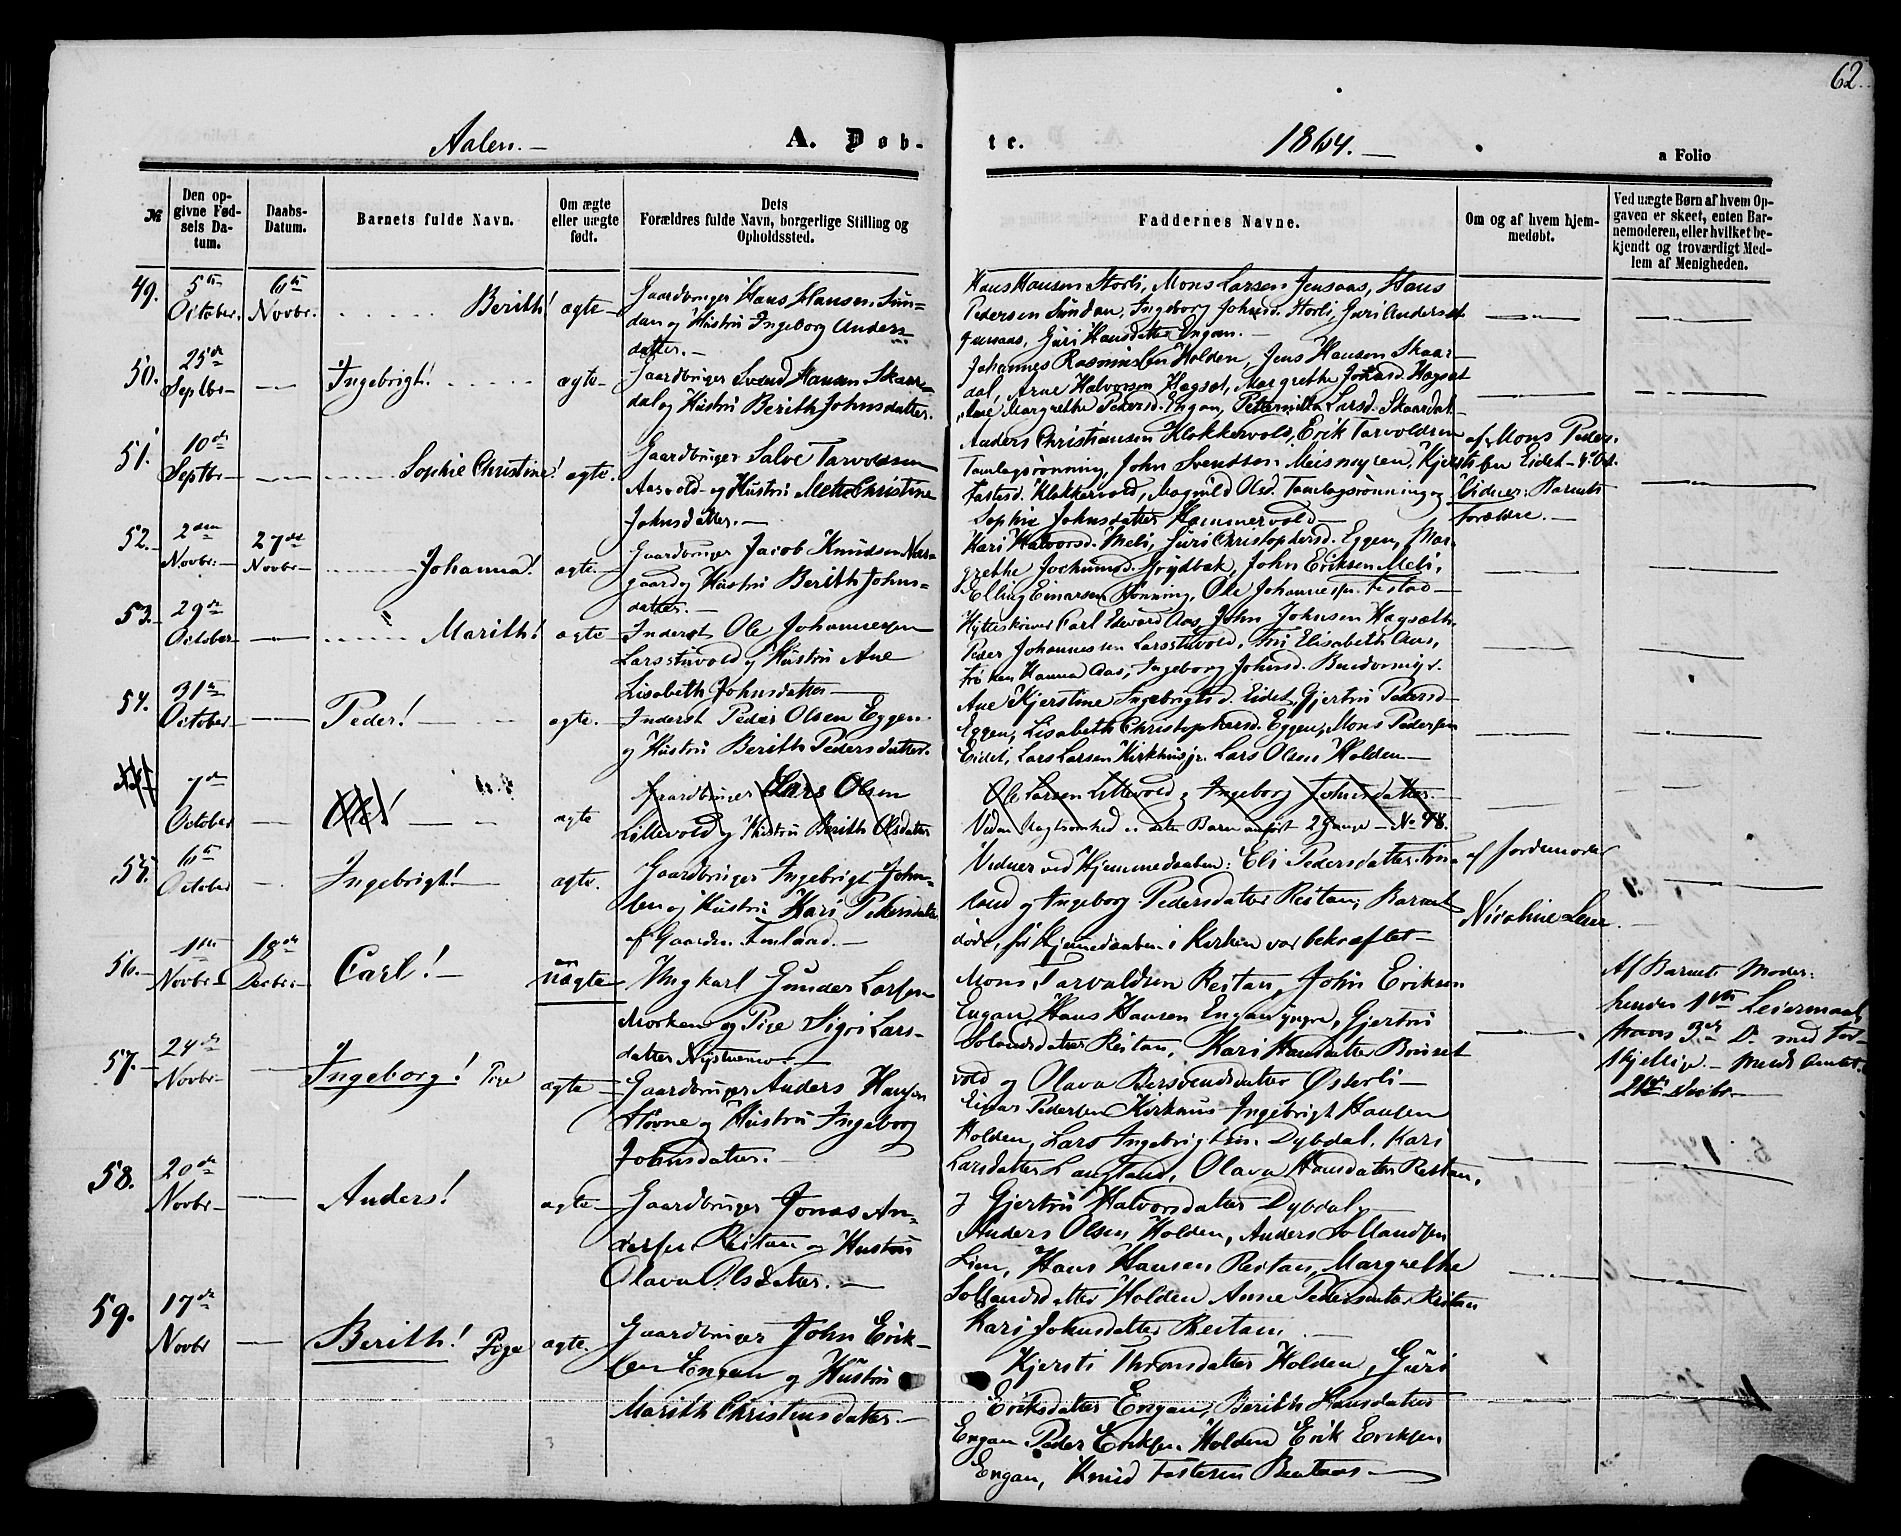 62.
Aalen.
A. Døb-
te.
1864.
a Folio
№
Den opgivne Fødsels Datum.
Daabs-Datum.
Barnets fulde Navn.
Om ægte eller uægte født.
Dets Forældres fulde Navn, borgerlige Stilling og Opholdssted.
Faddernes Navne.
Om og af hvem hjemmedøbt.
Ved uægte Børn af hvem Opgaven er skeet, enten Barnemoderen, eller hvilket bekjendt og troværdigt Medlem af Menigheden.
49.
5te October
6te Novbr.
Berith!
ægte
Gaardbruger Hans Hansen Sun-
dan og Hustru Ingeborg Anders
datter.
Hans Hansen Storli, Mons Larsen Jensaas, Hans
Pedersen Sundan, Ingeborg Johnsd. Storli, Guri Andersd
Jensaas, Guri Hansdatter Engan.
50.
25de Septbr
Ingebrigt!
ægte
Gaardbruger Svend Hansen Skaar-
dal og Hustru Berith Johnsdatter.
Johannes Rasmussen Holden, Jens Hansen Skaar-
dal, Arne Halvorsen Hagsæt, Margrethe Johnsd. Hagsæt
Margrethe Pedersd. Engan, Petternilla Larsd. Skaardal
51.
10de Septbr
Sophie Christine!
ægte.
Gaardbruger Salve Tarvoldsen
Aasvold og Hustru Mette Christine
Johnsdatter.
Anders Christiansen Klokkervold, Erik Tarvoldsen
Tamlagsrønning, John Svendsen Meismyren, Kjersti
Fastesd. Klokkervold, Magnild Olsd. Tamlagsrønning og
Sophie Johnsdatter Hammervold
af Mons Peder-
sen Eidet
Vidner: Barnets
Forældre.
52.
2den Novbr.
27de Novbr
Johanna!
ægte.
Gaardbruger Jacob Knudsen Næs-
gaard og Hustru Berith Johns-
datter.
Kari Halvorsd. Meli, Guri Christophersd. Eggen, Mar-
grethe Jochumsd. Grydbak, John Eriksen Meli,
Elling Einarsen Rønning, Ole Johannessen
53.
29de October
Marith!
ægte
Inderst Ole Johannesen
Larsstuvold og Hustru Ane
Lisabeth Johnsdatter
Hytteskriver Carl Edvard Aas, John Johnsen Hagsæth
Peder Johannessen Larsstuvold, Elisabeth Aas,
Frøken Hanna Aas, Ingeborg Johnsd.
54.
31te October
Peder!
ægte.
Inderst Peder Olsen Eggen
og Hustru Berith Pedersdatter.
Ane Kjerstine Ingebrigtsd. Eidet, Gjertru Pedersd
Eggen, Lisabeth Christophersd. Eggen, Mons Pedersen
Eidet, Lars Larsen Kirkhus jr. Lars Olsen Holden
7de October
Ole!
ægte
Gaardbruger Lars Olsen
Lillevold og Hustru Berith Olsdatter
Ole Larsen Lillevold og Ingeborg Johnsdatter
Ved en Uagtsomhed er dette Barn anført 2 Gange - No 48.
55.
6te October
Ingebrigt!
ægte.
Gaardbruger Ingebrigt John-
sen og Hustru Kari Pedersdatter
af Gaarden Finland.
Vidner ved Hjemmedaaben: Eli Pedersdatter Fin-
land og Ingeborg Pedersdatter Reitan; Barnet
døde, før Hjemmedaaben i Kirken var bekræftet
af Jordemoder
Nicoline Lere
56.
1ste Novbr
18de Decbr.
Carl!
uægte
Ungkarl Gunder Larsen
Morken og Pige Sigri Lars-
datter Nystuemo
Mons Tarvaldsen Reitan, John Eriksen
Engan, Hans Hansen Engan yngre, Gjertru
Solandsdatter Reitan, Kari Hansdatter Bonset
vold og Olava Bersvendsdatter Østerli
Af Barnets Moder:
hendes 1ste Leiermaal,
hans 3de Do med for-
skjellige. Meldt Amtet
21de Decbr
57.
24de Novbr
Ingeborg! Pige
ægte
Gaardbruger Anders Hansen
Hovne og Hustru Ingeborg
Johnsdatter.
Einar Pedersen Kirkhus Ingebrigt Hansen
Holden, Lars Ingebrigtsen Dybdal, Kari
Larsdatter Langland, Olava Hansdatter Reitan,
og Gjertru Halvorsdatter Dybdal
58.
20de Novbr
Anders!
ægte
Gaardbruger Jonas An-
dersen Reitan og Hustru
Olava Olsdatter.
Anders Olsen Holden, Anders Sollandsen
Lien, Hans Hansen Reitan, Margrethe
Sollandsdatter Holden Anne Pedersdatter Reitan
Kari Johnsdatter Reitan.
59.
17de Novbr
Berith! Pige
ægte.
Gaardbruger John Erik-
sen Engan og Hustru
Marith Christensdatter.
Kjersti Thronsdatter Holden, Guri
Eriksdatter Engan, Berith Hansdatter
Engan Peder Eriksen Holden Erik Eriksen
Engan, Knud Fastesen